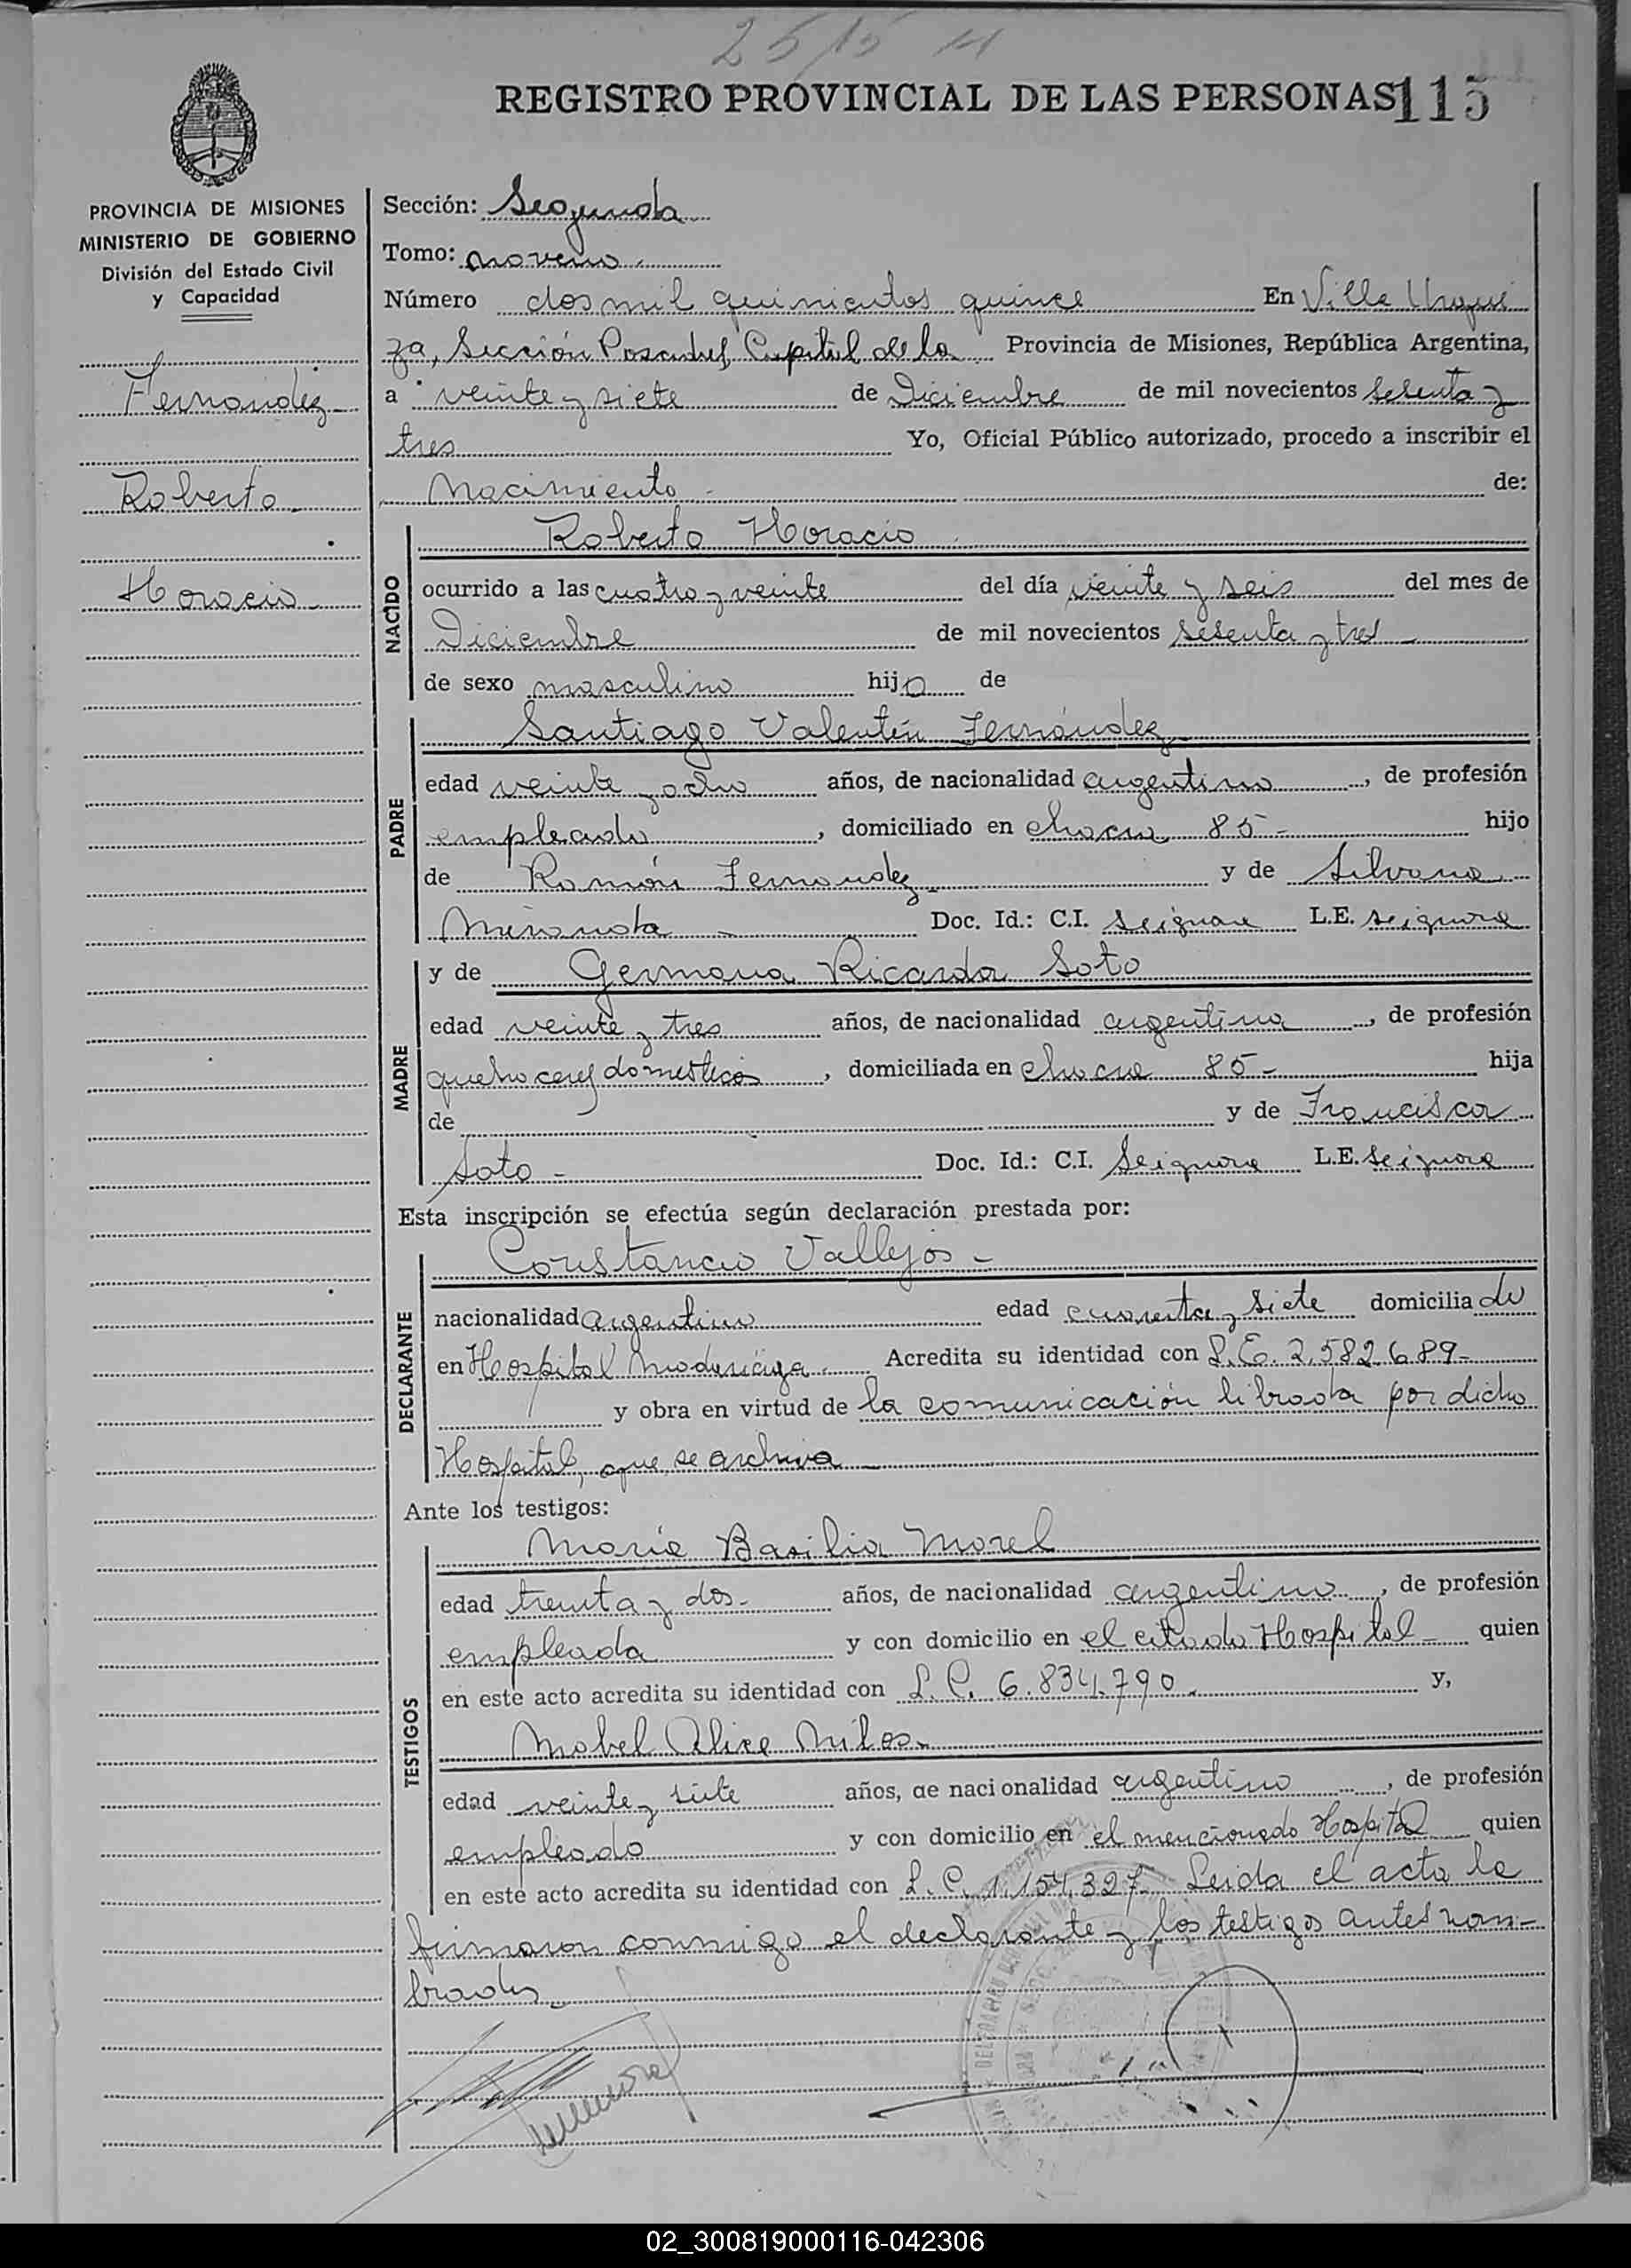 2515
REGISTRO PROVINCIAL DE LAS PERSONAS 115
PROVINCIA DE MISIONES
MINISTERIO DE GOBIERNO
División del Estado Civil
y Capacidad
Fernández
Roberto
Horacio
Sección: Segunda
Tomo: noveno
Número dos mil quinientos quince En Villa Urqui
za, Sección Posadas, Capital de la Provincia de Misiones, República Argentina,
a veinte y siete de Diciembre de mil novecientos sesenta y
tres Yo, Oficial Público autorizado, procedo a inscribir el
Nacimiento de:
NACIDO
Roberto Horacio
ocurrido a las cuatro y veinte del día veinte y seis del mes de
Diciembre de mil novecientos sesenta y tres
de sexo masculino hijo de
PADRE
Santiago Valentín Fernández
edad veinte y ocho años, de nacionalidad argentino, de profesión
empleado, domiciliado en chacra 85 - hijo
de Ramón Fernandez y de Silvana
Miranda - Doc. Id.: C.I. se ignora L.E. se ignora
MADRE
y de Germana Ricarda Soto
edad veinte y tres años, de nacionalidad argentina, de profesión
quehaceres domesticos, domiciliada en chacra 85 - hija
de y de Francisca
Soto - Doc. Id.: C.I. Se ignora L.E. se ignora
Esta inscripción se efectúa según declaración prestada por:
DECLARANTE
Constancio Vallejos -
nacionalidad argentino edad cuarenta y siete domiciliado
en Hospital Madariaga. Acredita su identidad con L.E. 2.582.689-
y obra en virtud de la comunicación librada por dicho
Hospital, que se archiva -
Ante los testigos:
TESTIGOS
María Basilia Morel
edad treinta y dos - años, de nacionalidad argentina, de profesión
empleada y con domicilio en el citado Hospital - quien
en este acto acredita su identidad con L.C. 6.834.790. y,
Mabel Alice Milos -
edad veinte y siete años, de nacionalidad argentina, de profesión
empleada y con domicilio en el mencionado Hospital quien
en este acto acredita su identidad con L.C. 1.154.327. Leida el acta la
firmaron conmigo el declarante y los testigos antes nom-
brados -
02_300819000116-042306